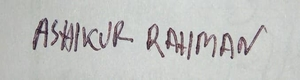 ASHIKUR RAHMAN